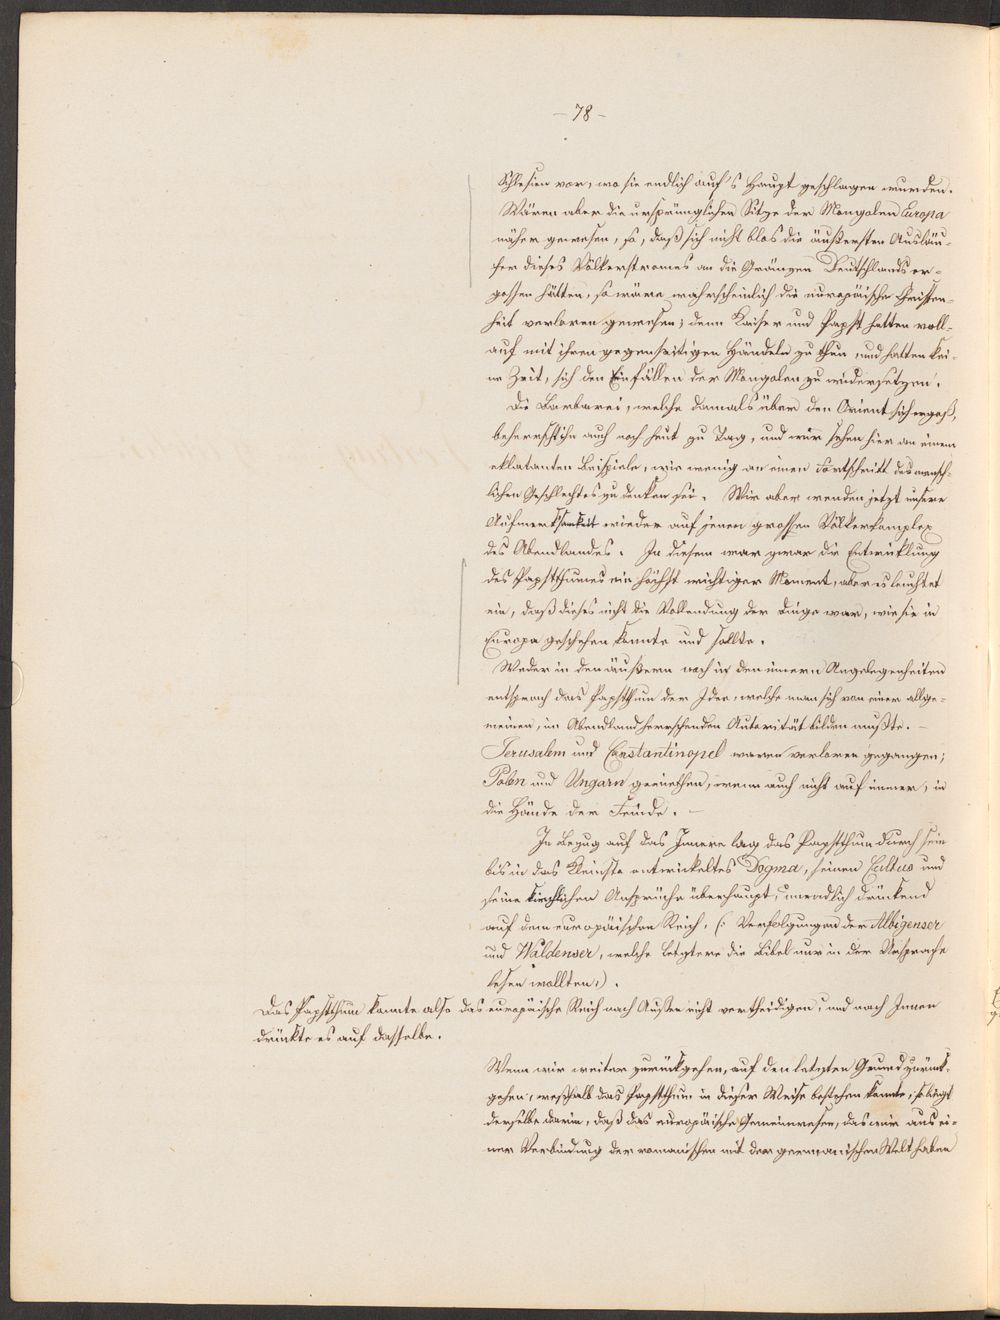 - 78 -
Schlesien vor, wo sie endlich auf's Haupt geschlagen wurden.
Wären aber die ursprünglichen Sitze der Mongolen Europa
näher gewesen, so, daß sich nicht blos die äußersten Ausläu-
fer dieses Völkerstromes an die Gränzen Deutschlands er-
gossen hätten, so wäre wahrscheinlich die europäische Christen-
heit verloren gewesen; denn Kaiser und Papst hatten voll-
auf mit ihren gegenseitigen Händeln zu thun, und hatten kei-
ne Zeit, sich den Einfällen der Mongolen zu widersetzen.
Die Barbarei, welche damals über den Orient sich ergoß,
beherrscht ihn auch noch heut zu Tag, und wir sehen hier an einem
eklatanten Beispiele, wie wenig an einen Fortschritt des mensch-
lichen Geschlechtes zu denken sei. Wir aber wenden jetzt unsere
Aufmerksamkeit wieder auf jenen grossen Völkerkomplex
des Abendlandes. In diesem war zwar die Entwicklung
des Papstthumes ein höchst wichtiger Moment, aber es leuchtet
ein, daß dieses nicht die Vollendung der Dinge war, wie sie in
Europa geschehen konnte und sollte.
Weder in den äußern noch in den innern Angelegenheiten
entsprach das Papstthum der Idee, welche man sich von einer allge-
meinen, im Abendland herrschenden Autorität bilden mußte. -
Jerusalem und Constantinopel waren verloren gegangen;
Polen und Ungarn geriethen, wenn auch nicht auf immer, in
die Hände der Feinde. -
In Bezug auf das Innere lag das Papstthum durch sein
bis in das Kleinste entwickeltes Dogma, seinen Cultus und
seine kirchlichen Ansprüche überhaupt, unendlich drückend
auf dem europäischen Reich. (: Verfolgungen der Albigenser
und Waldenser, welche letztere die Bibel nur in der Ursprache
lesen wollten.)
Das Papstthum konnte also das europäische Reich nach Außen nicht vertheidigen, und nach Innen
drückte es auf dasselbe.
Wenn wir weiter zurückgehen, auf den letzten Grund zurück-
gehen, weßhalb das Papstthum in dieser Weise bestehen konnte, so liegt
derselbe darin, daß das europäische Gemeinwesen, das wir aus ei-
ner Verbindung der romanischen mit der germanischen Welt haben